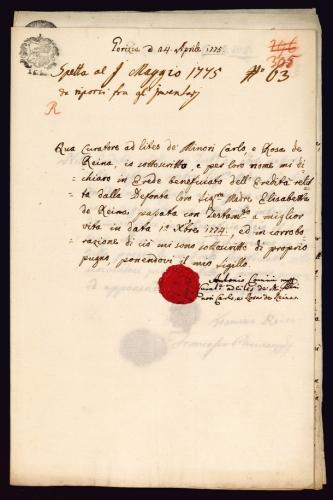 Gorizia d 24 Aprile 1775
196
305
Spetta al J Maggio 1775 No 63
da riporsi fra gl' Inventarj
R
Qua Curatore ad lites de' Minori Carlo, e Rosa de
Reina, io sottoscritto, e per loro nome mi di-
chiaro in Erede beneficiato dell' Eredità relit-
ta dalla Defonta loro Sigra Madre Elisabetta
de Reina, passata con Testamto a miglior
vita in data 12 Xbre 1774. ed in corrobo-
razione di ciò mi sono sottoscritto di proprio
pugno, ponendovi il mio Sigillo.
Antonio
Curatre ad lites de' Minori
Carlo, e Rosa de Reina